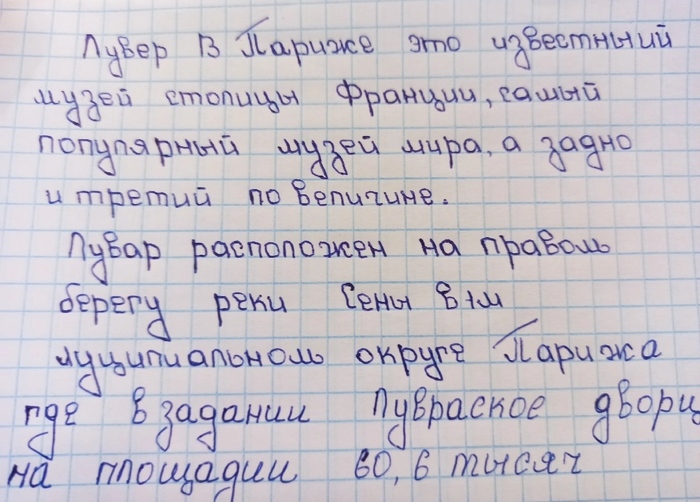 Лувер В Париже это известный
музей столицы Франции, самый
популярный музей мира, а задно
и третий по величине.
Лувар расположен на правом
берегу реки Сены в 1м
муципиальном округе Парижа
где в задании Лувраское дворц
на площадии 60,6 тысяч